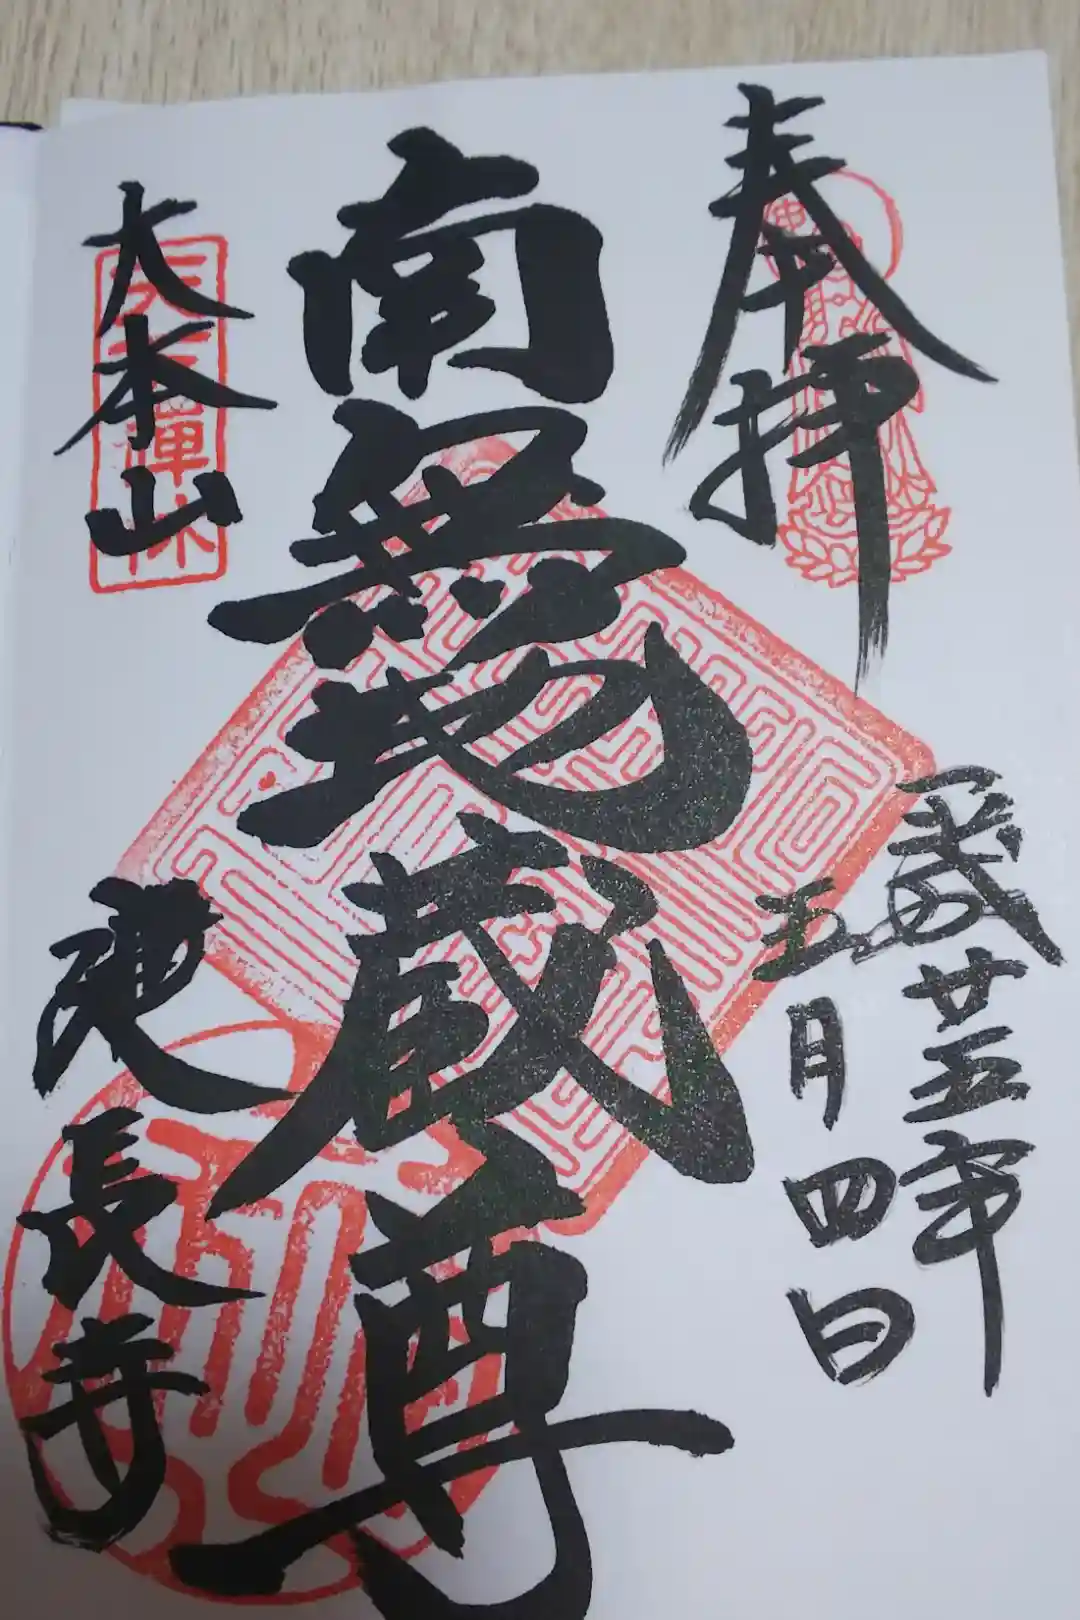 奉拝
平成廿五年
五月四日
南無地蔵尊
天下禪林
大本山
建長寺